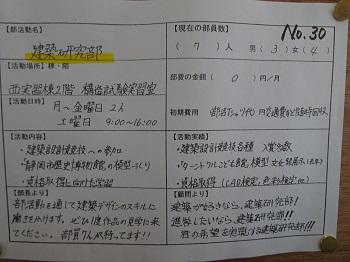 【部活動名】
建築研究部
【現在の部員数】
No.30
( 7 )人 男( 3 )女( 4 )
【活動場所】棟・階
西実習棟2階 構造試験実習室
部費の金額 ( 0 )円/月
【活動日時】
月～金曜日 2h
土曜日 9:00～16:00
初期費用
【活動内容】
・建築設計競技への参加
・「静岡市歴史博物館」の模型づくり
・資格取得に向けた学習
【活動実績】
・建築設計競技各種 入賞多数
・資格取得(CAD検定,色彩検定etc)
【部長より】
部活動を通して建築デザインのスキルに
磨きをかけます。ぜひ1度作品の見学に来
てください。部員7人が待ってます!!
【顧問より】
建築が好きなら、建築研究部!
進学したいなら、建築研究部!!
君の希望を実現する建築研究部!!!